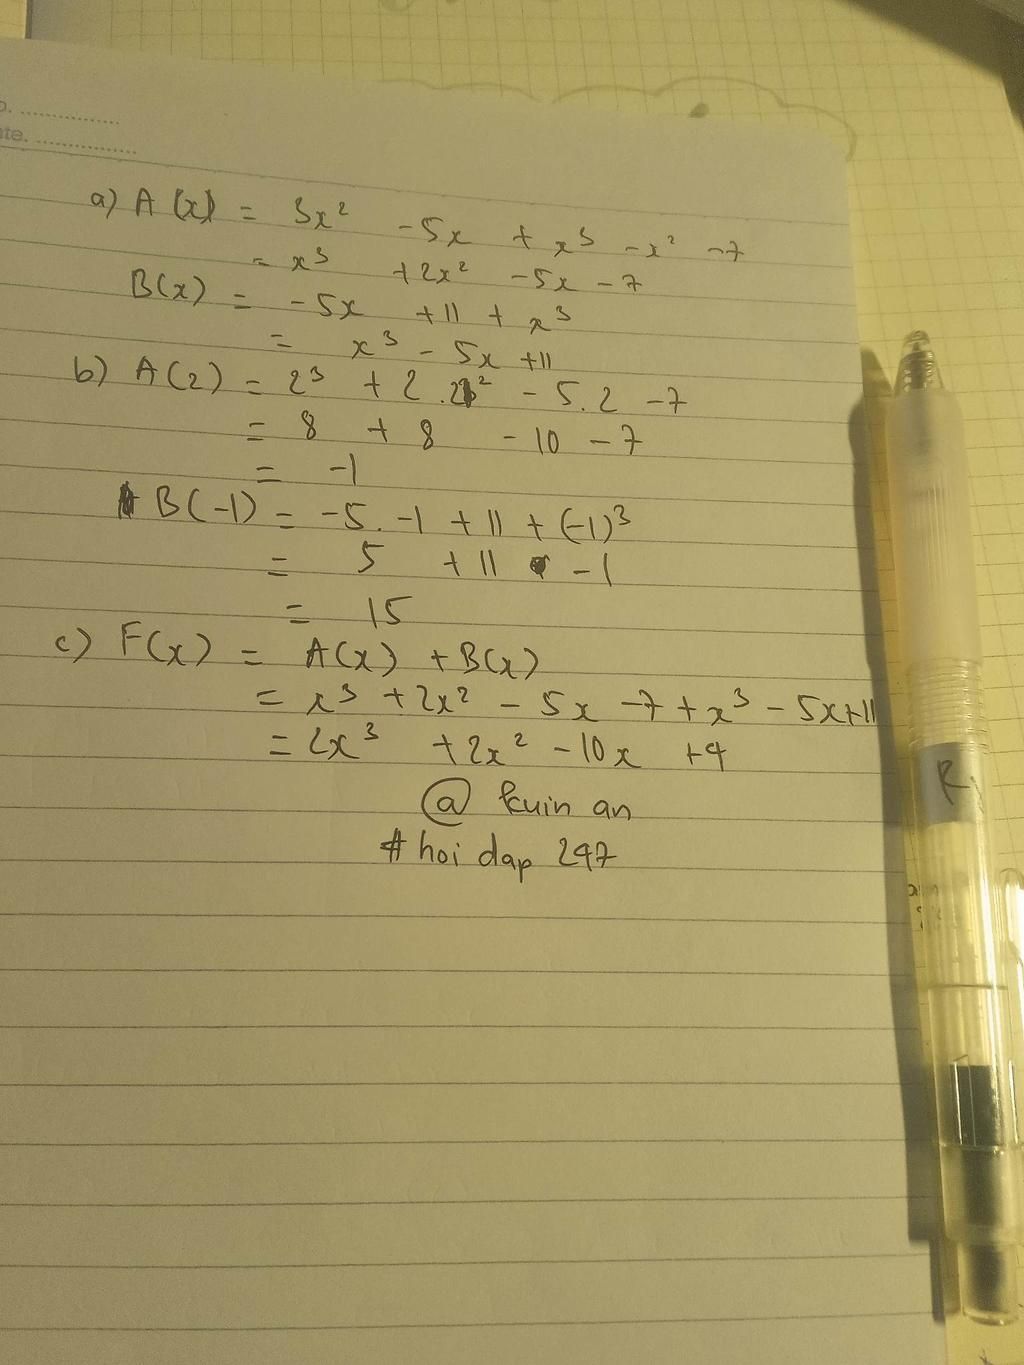 a) A(x) = 3x² - 5x + x³ - x² - 7
= x³ + 2x² - 5x - 7
B(x) = - 5x + 11 + x³
= x³ - 5x + 11
b) A(2) = 2³ + 2 . 2² - 5.2 - 7
= 8 + 8 - 10 - 7
= -1
B(-1) = -5. -1 + 11 + (-1)³
= 5 + 11 - 1
= 15
c) F(x) = A(x) + B(x)
= x³ + 2x² - 5x - 7 + x³ - 5x + 11
= 2x³ + 2x² - 10x + 4
@ kuin an
# hoi dap 247
R